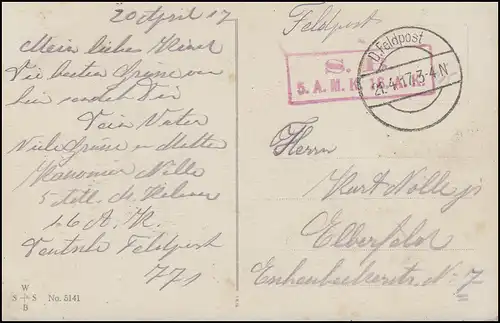 20 April 17
Mein liebes Kind
Die besten Grüsse von
hier sendet Dir
Dein Vater
Viele Grüsse an Mutter
Kanonier Nolle
5
46 A. K.
Deutsche Feldpost
771
W
S S
B
No. 5141
Feldpost
S.
5. A. M. K.
D. Feldpost
21.4.17. 3-4 N
Herrn
Kurt Nolle jr
Elberfeld
Eschenbeekerstr. No 7